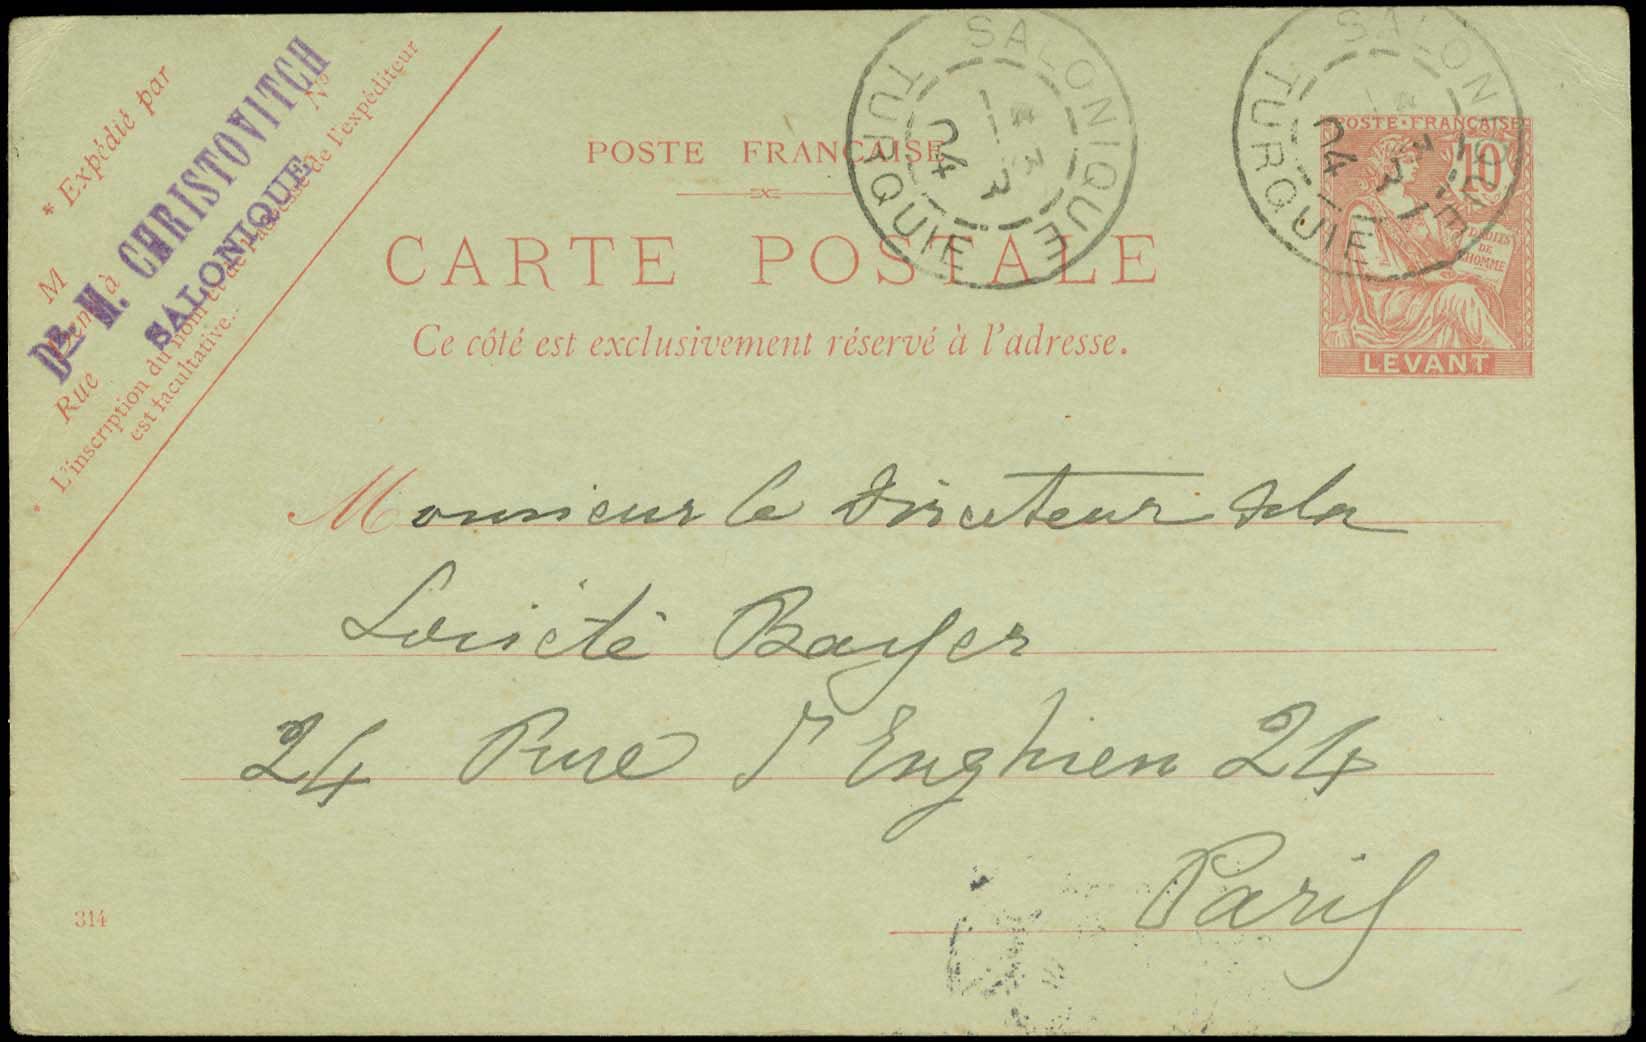 * Expédié par
M
Rue
Nº
DR. M. CHRISTOVITCH
SALONIQUE
* L'inscription du nom et de l'adresse de l'expéditeur
est facultative.
POSTE FRANÇAISE
CARTE POSTALE
Ce côté est exclusivement réservé à l'adresse.
SALONIQUE
04
TURQUIE
SALONIQUE
04
TURQUIE
POSTE·FRANÇAISE
10
DROITS
DE
L'HOMME
LEVANT
Monsieur le Directeur de la
Société Bayer
24 Rue d'Enghien 24
Paris
314